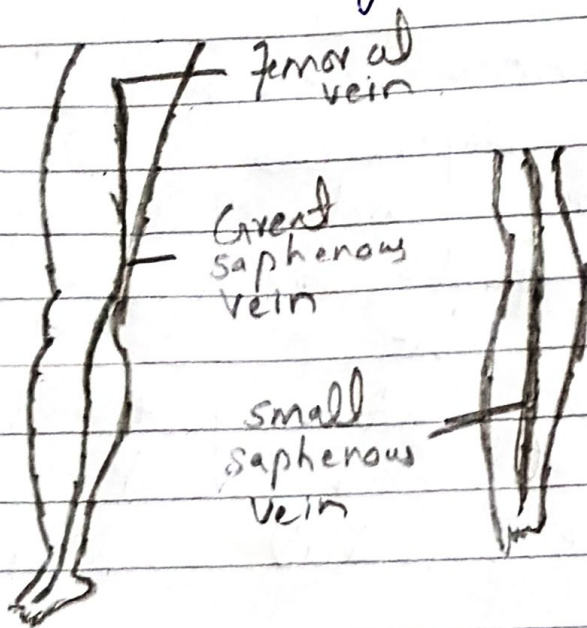 Femoral
vein
Great
saphenous
vein
small
saphenous
vein